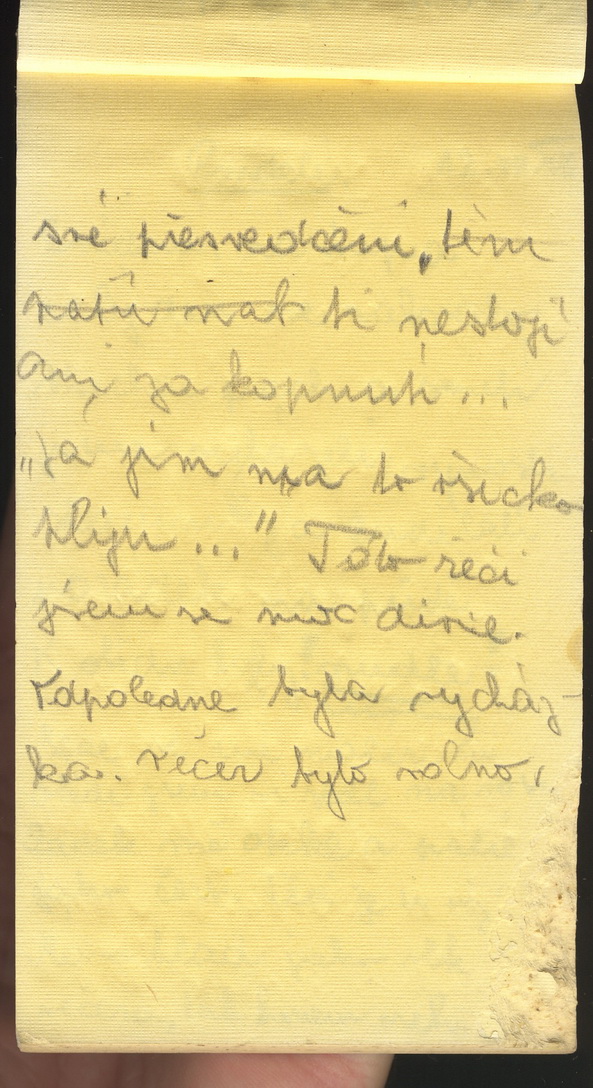 své přesvedčení, těm
ti nestojí
ani za kopnutí...
„Já jim na to všecko
bliju..." Této řeči
jsem se moc divil.
Odpoledne byla vycház-
ka. Večer bylo volno,